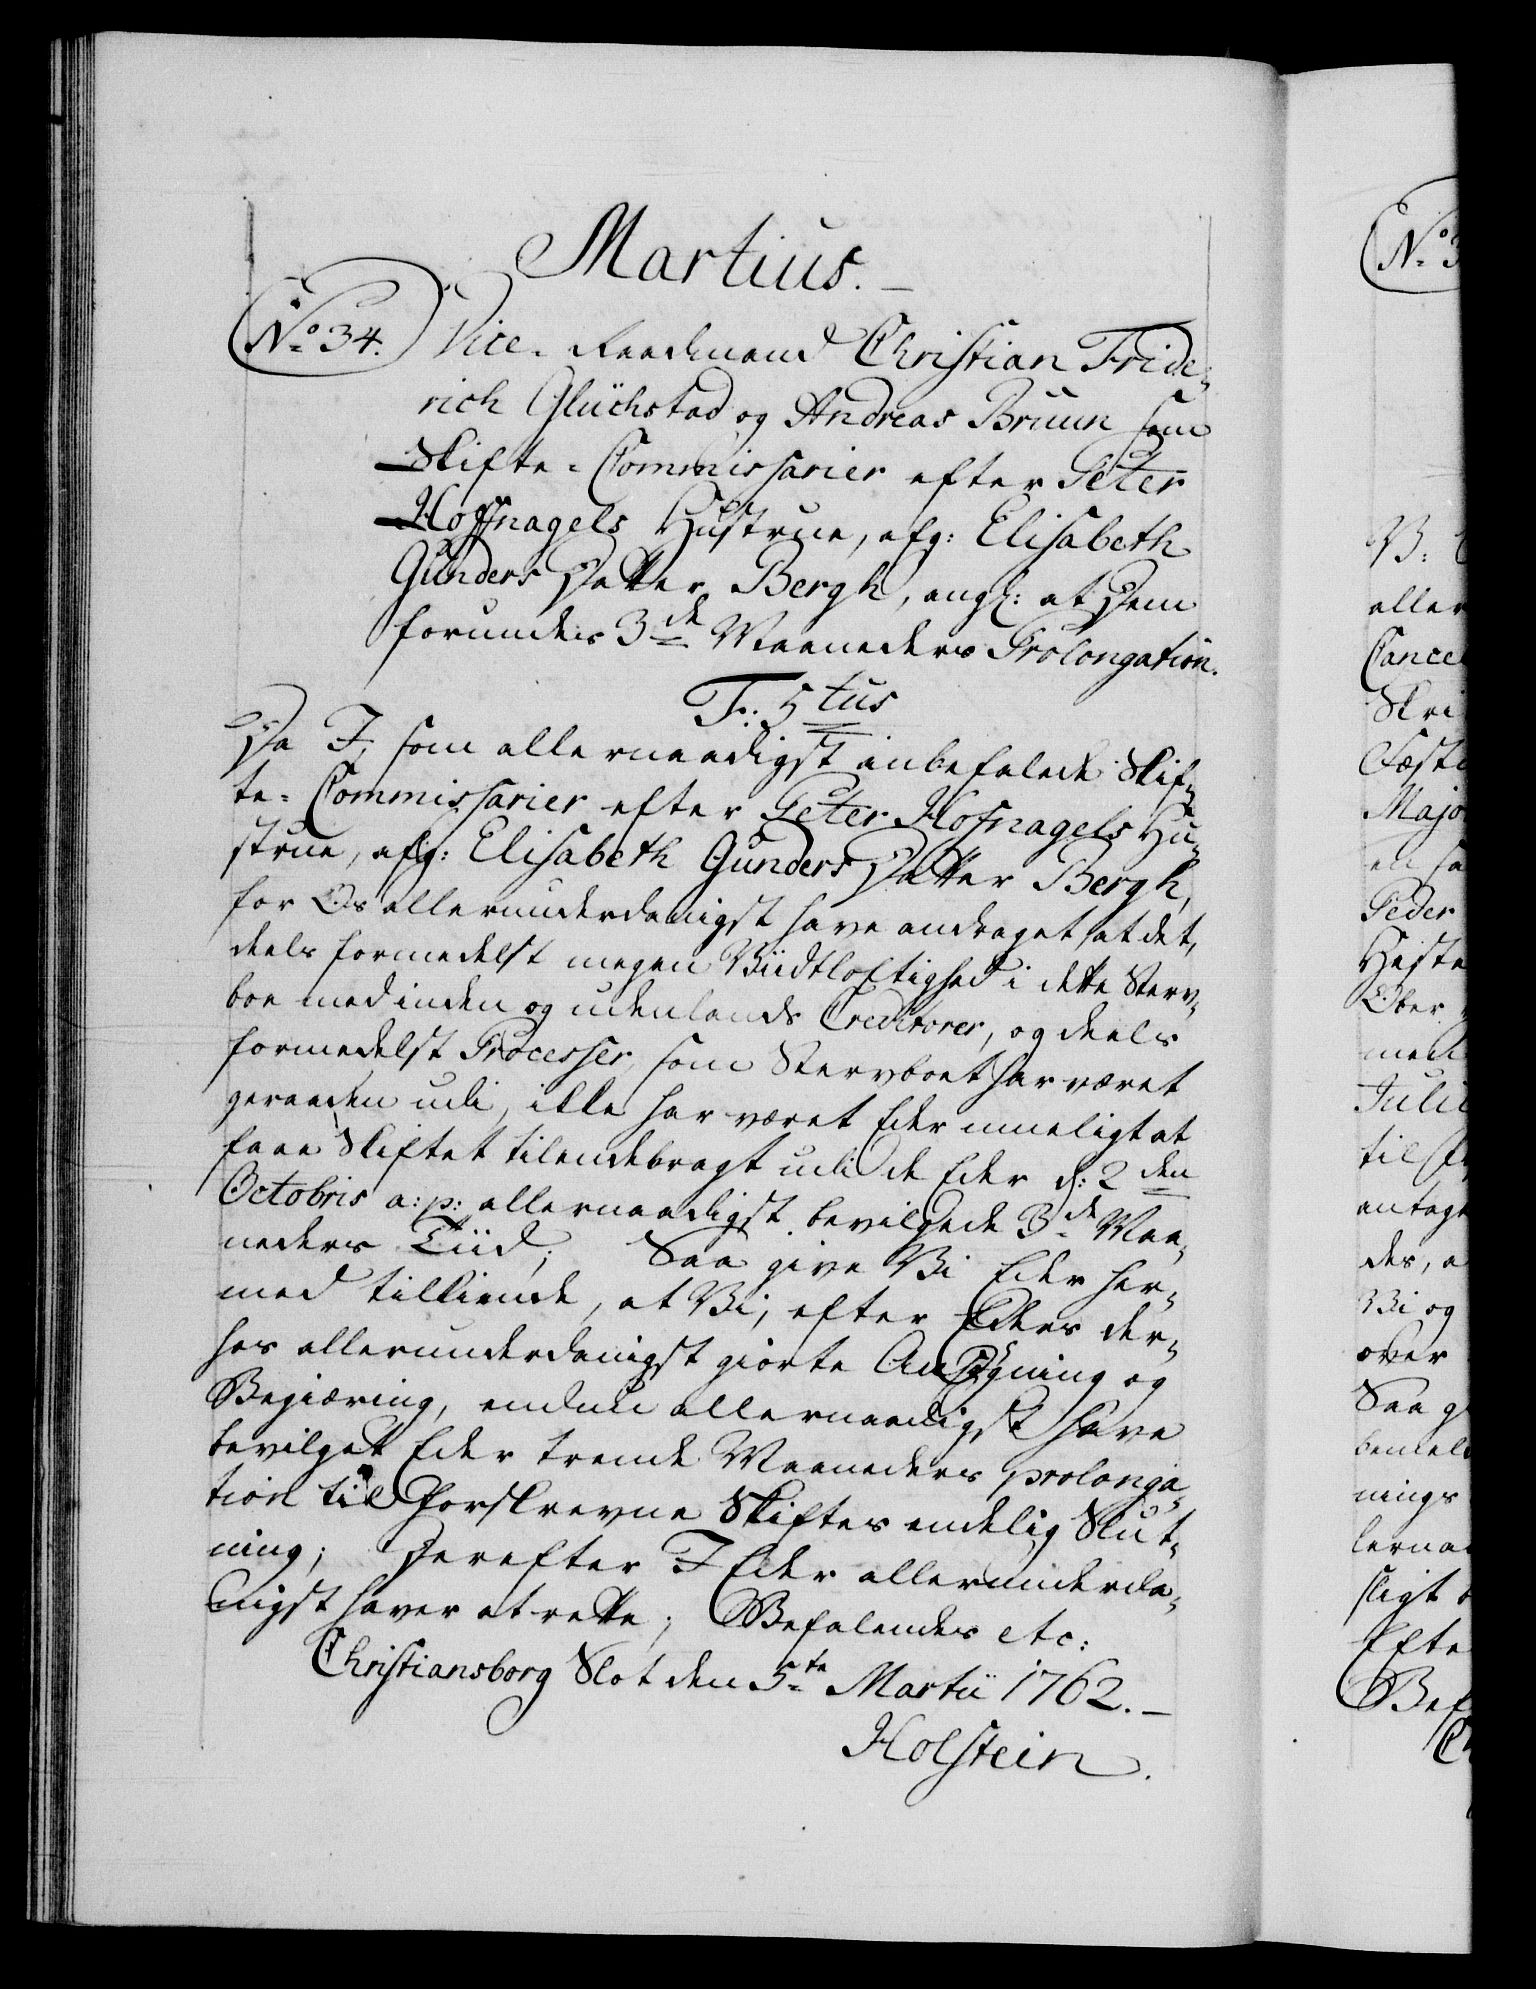 Martius.
No 34. Vice-Raadmand Christian Fride-
rich Glückstad og Andreas Bruun som
Skifte-Commissarier efter Peter
Hoffnagels Hustrue, afg: Elisabeth
Gunders Datter Bergh, angl: at Dem
forundes 3de Maaneders Prolongation.
F: 5tus
Da I, som allernaadigst anbefalede Skif-
te-Commissarier efter Peter Hofnagels Hu-
strue, afg: Elisabeth Gunders Datter Bergh,
for Os allerunderdanigst have andraget, at det,
deels formedelst megen Viidtløftighed i dette Sterv-
boe med inden og udenlands Creditorer, og deels
formedelst Processer, som Stervboet har været
geraaden udi, ikke har været Eder mueligt at
faae Skiftet tilendebragt udi de Eder d: 2den
Octobris a: p: allernaadigst bevilgede 3de Maa-
neders Tiid; Saa give Vi Eder her-
med tilkiende, at Vi, efter Eders der-
hos allerunderdanigst giorte Ansøgning og
Begiæring, endnu allernaadigst have
bevilget Eder trende Maaneders prolonga-
tion til forskrevne Skiftes endelig Slut-
ning; Derefter I Eder allerunderda-
nigst haver at rette; Befalendes etc:
Christiansborg Slot den 5te Martii 1762.
Holstein.
No 3
V:
aller
Cance
Skri
Fæste
Majo
en sa
Peder
Heste
Ober
med
Julii
til
antage
des, a
Vi og
over
Saa g
bemel
nings
lernaa
sligt
Efte
Bef
Ch